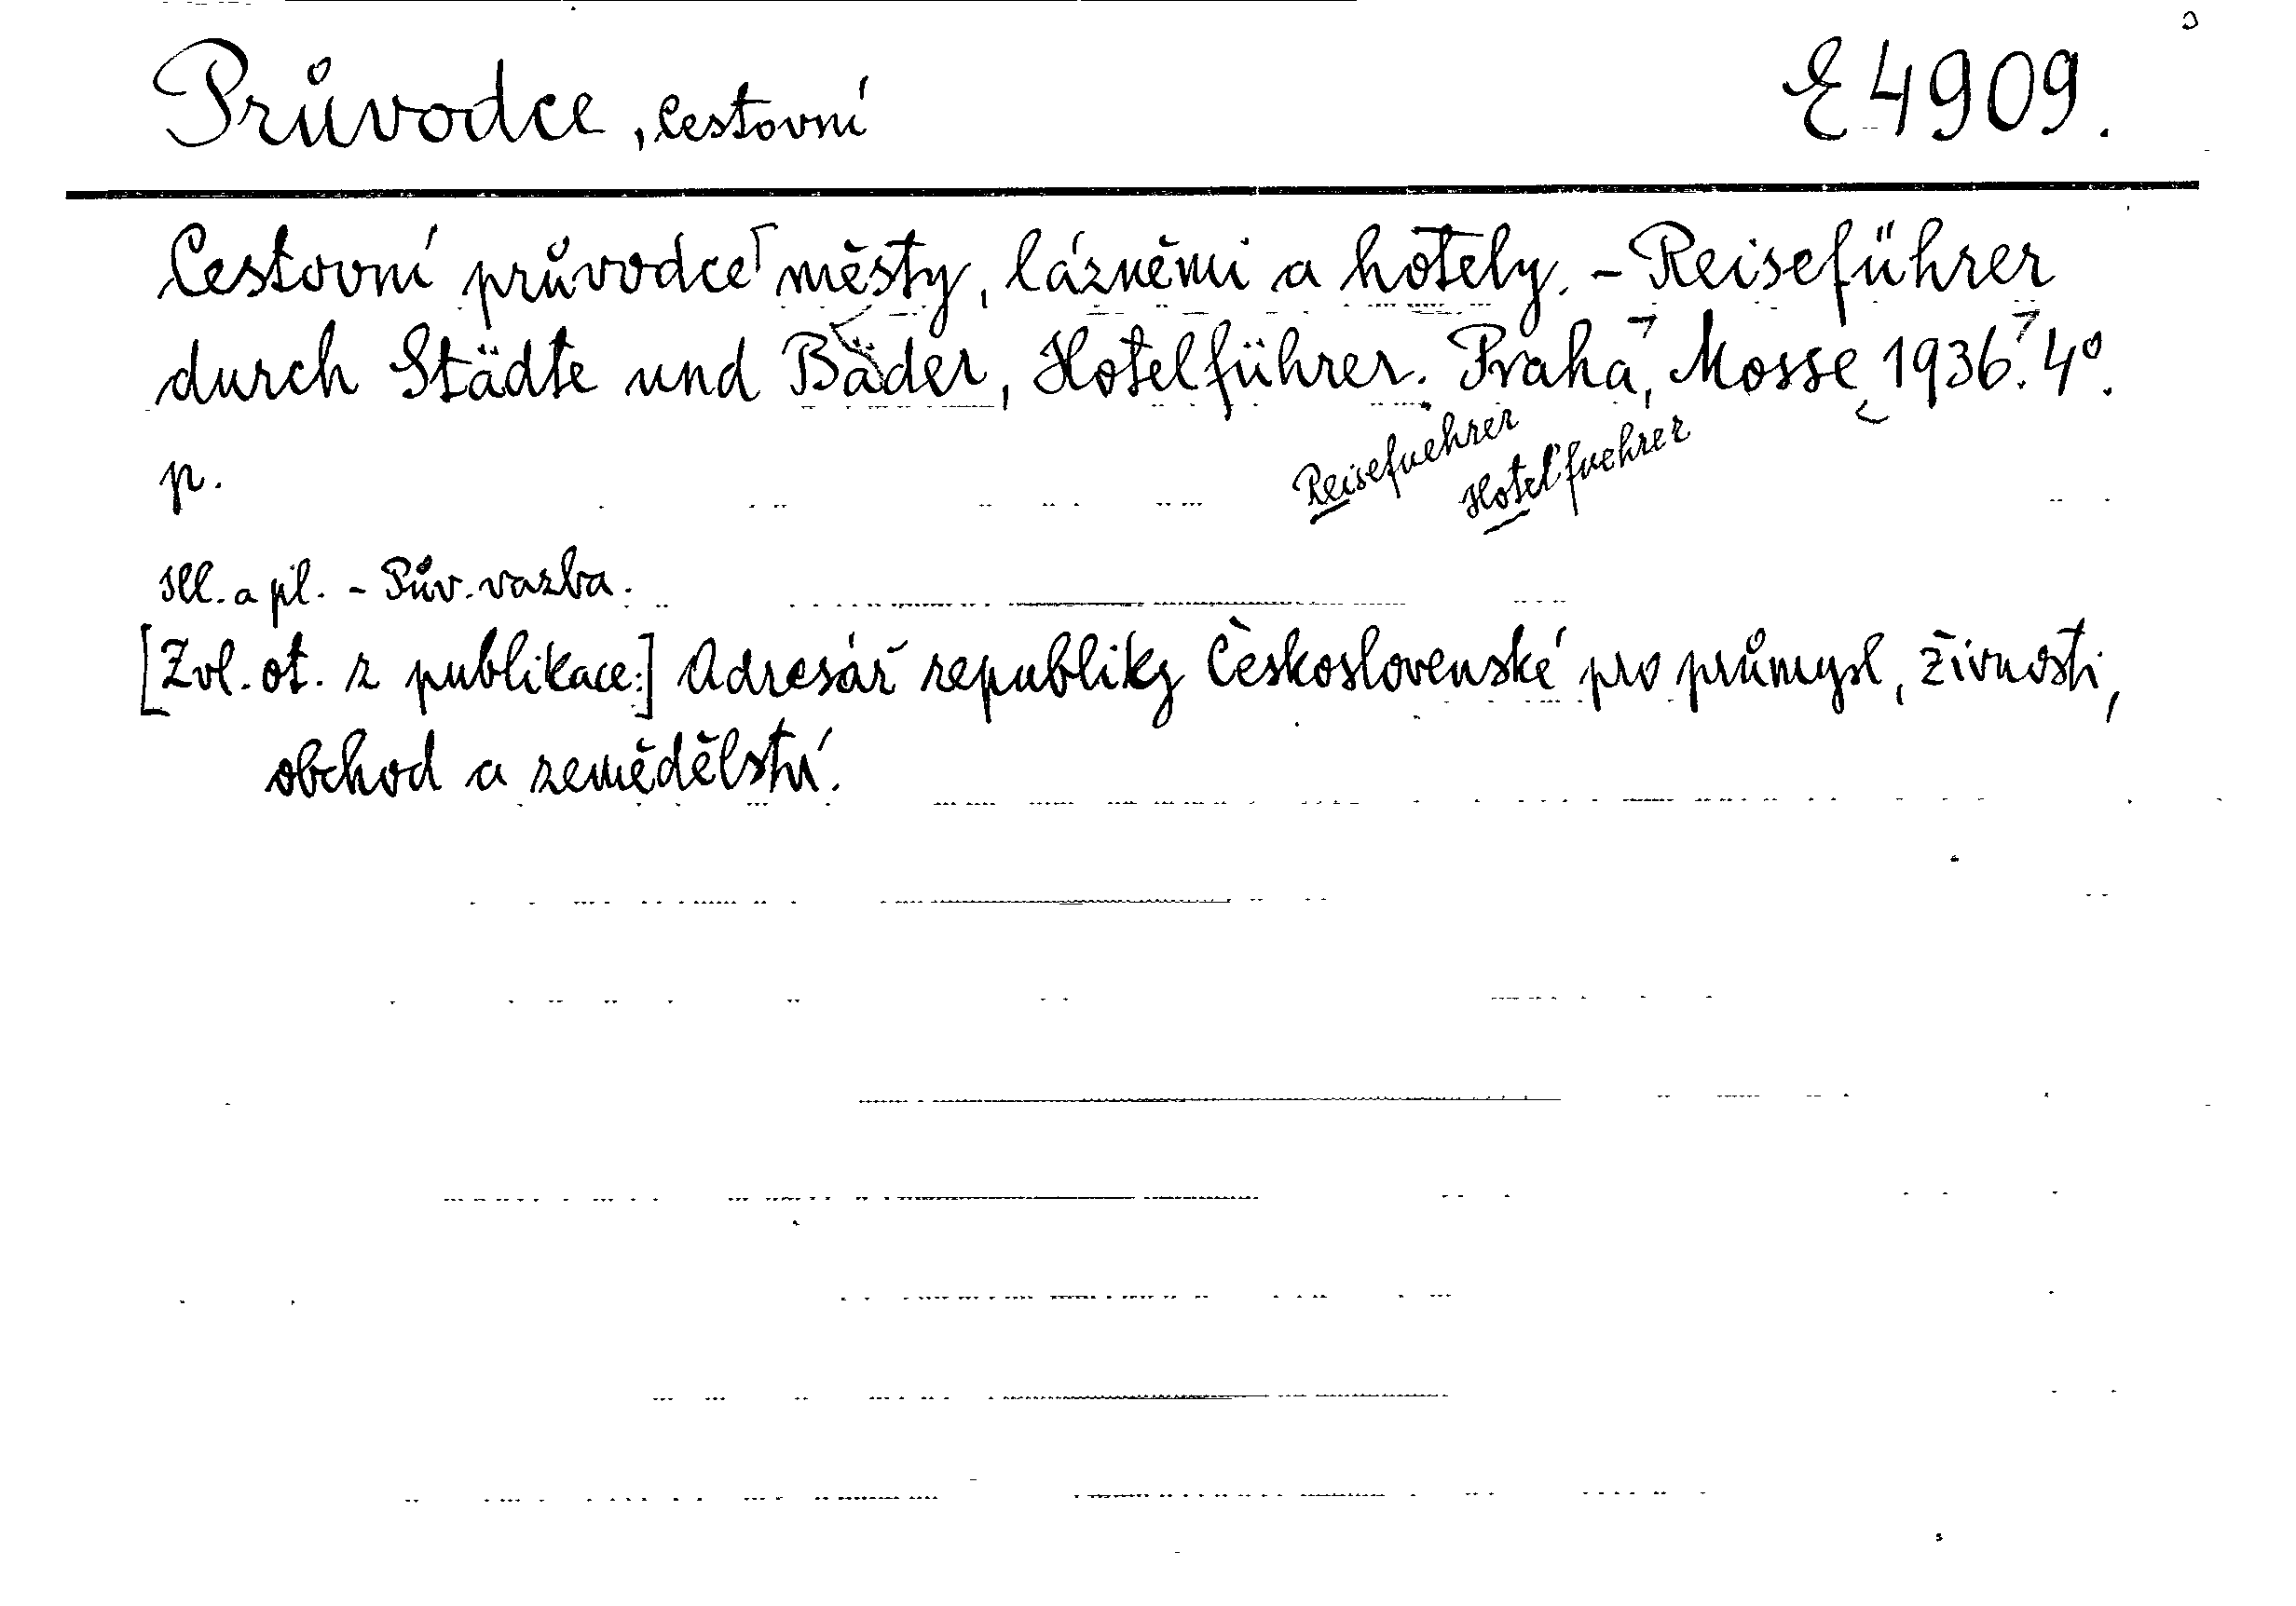 Průvodce, cestovní E 4909.
Cestovní průvodce městy, lázněmi a hotely. - Reiseführer
durch Städte und Bäder, Hotelführer. Praha, Mosse 1936. 4°.
p.
Reisefuehrer
Hotelfuehrer
Ill. a pl. - Pův. vazba.
[Zvl. ot. z publikace:] Adresář republiky Československé pro průmysl, živnosti,
obchod a zemědělství.